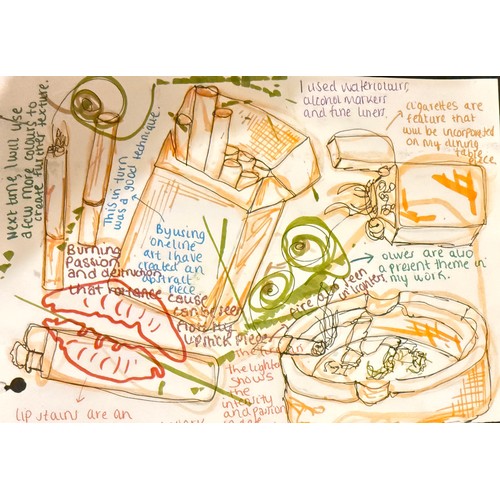 Next time, I will use
a few more colours to
create further texture.
This in turn
was a good technique.
I used watercolours,
alcohol markers
and fine liners.
cigarettes are
feature that
will be incorporated
on my dining
table
piece.
By using
one line
art I have
created an
abstract
piece
Burning
passion
and destruction
that romance cause
can be seen
olives are also
a present theme in
my work.
fire also seen
in
lipstick piece
the
the lighter
shows
the
intensity
and passion
lip stains are an